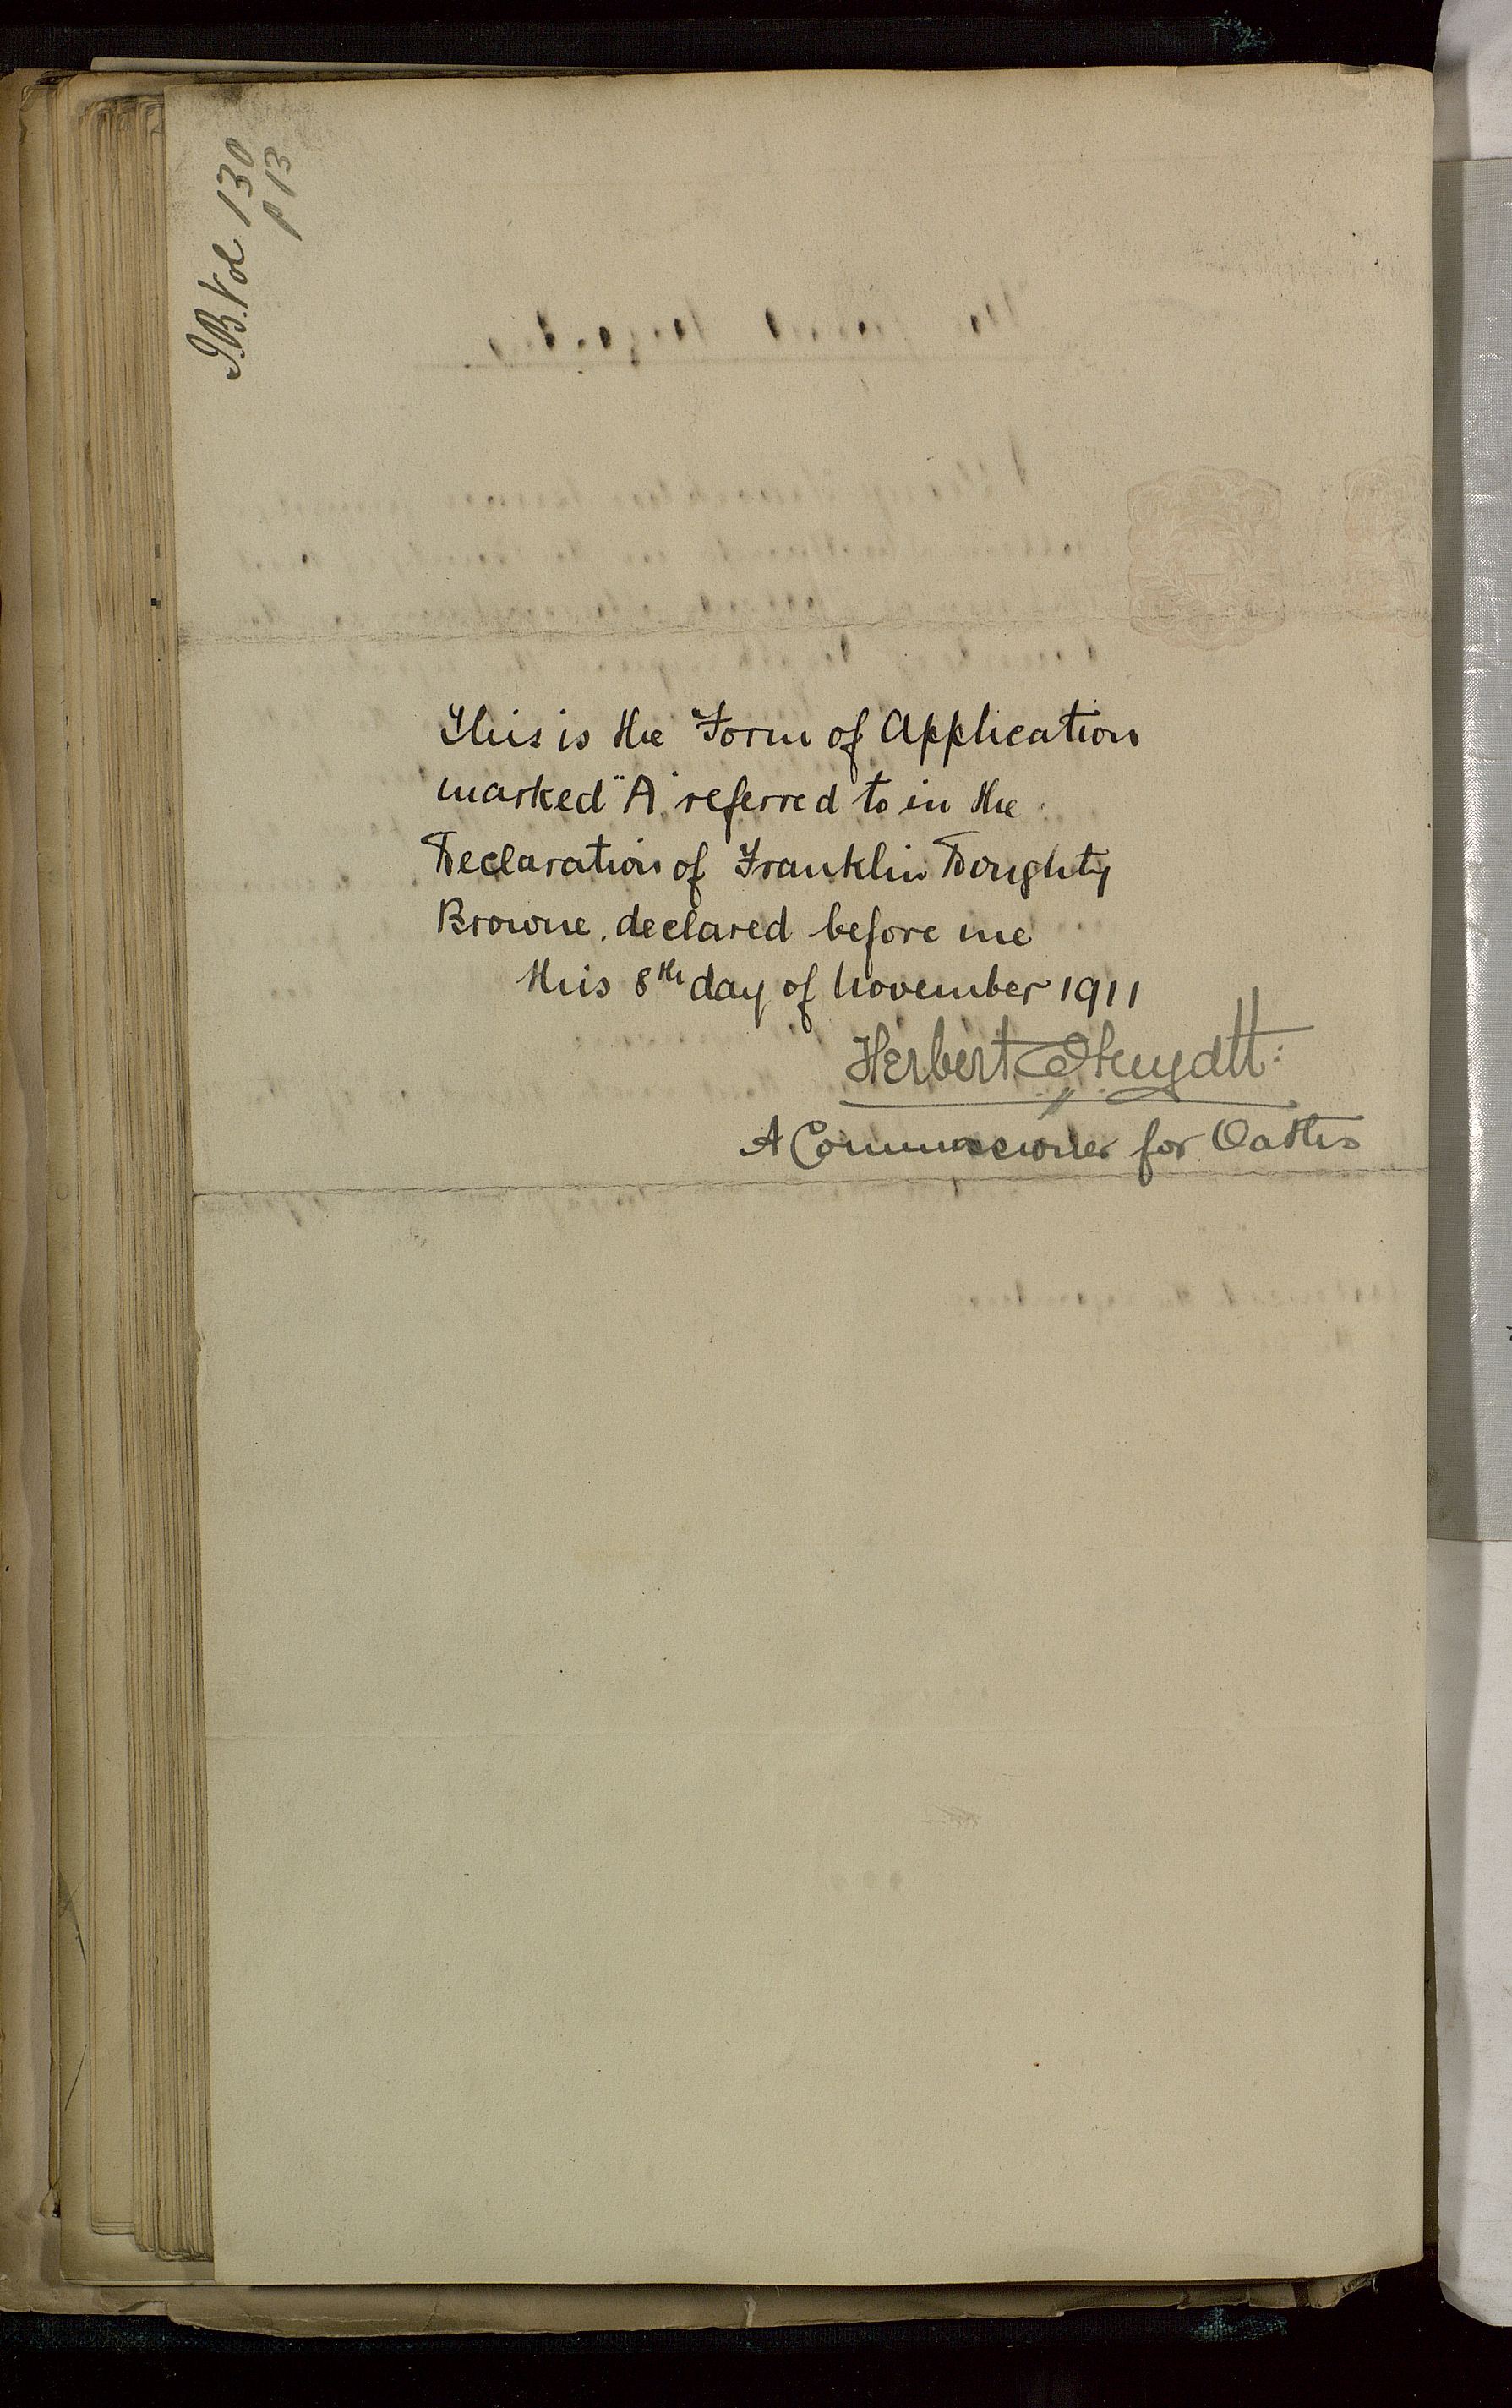 J.B. Vol 130
p 13
This is the Form of Application
marked "A" referred to in the
Declaration of Franklin Doughty
Browne. declared before me
this 8th day of November 1911
Herbert
A Commissioner for Oaths